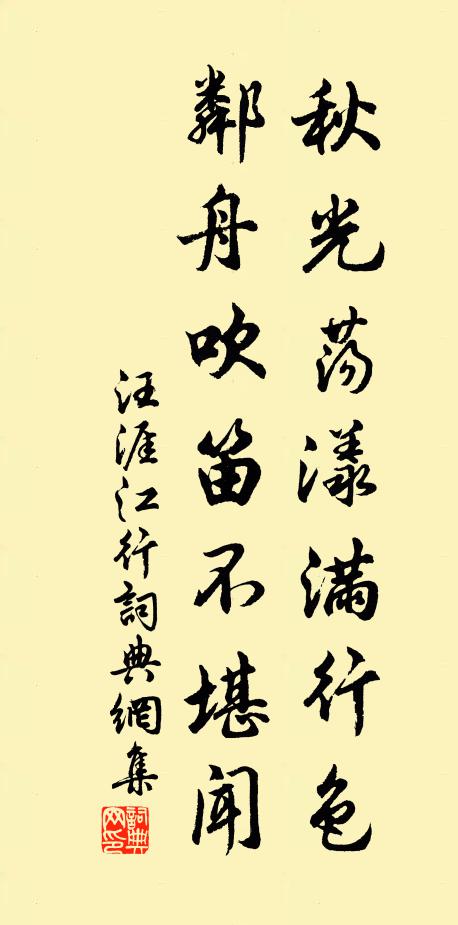 秋光荡漾满行色
鄰舟吹笛不堪闻
汪涯江行詞典網集
詞典网印